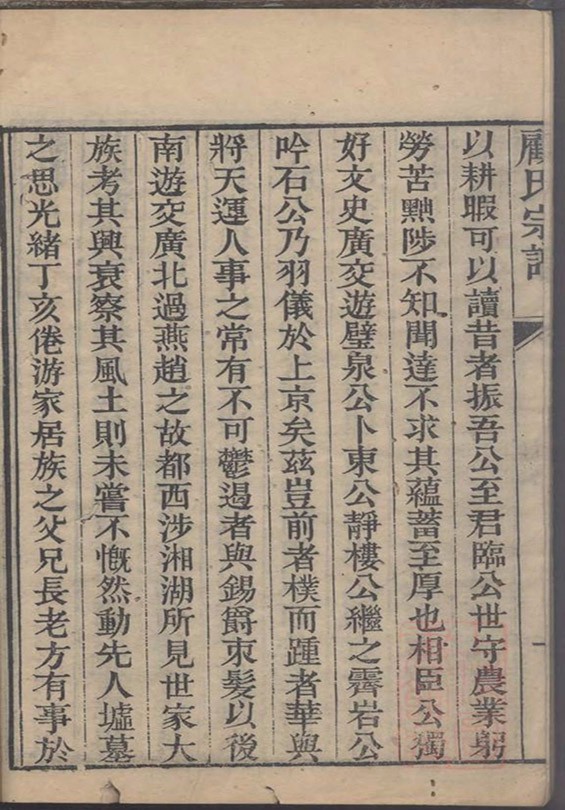 顧氏宗譜
以耕暇可以讀昔者振吾公至君臨公世守農業躬
勞苦黜陟不知聞達不求其蘊蓄至厚也相臣公獨
好文史廣交遊璧泉公卜東公靜樓公繼之霽岩公
吟石公乃羽儀於上京矣茲豈前者樸而踵者華與
將天運人事之常有不可鬱遏者與錫爵束髮以後
南遊交廣北過燕趙之故都西涉湘湖所見世家大
族考其興衰察其風土則未嘗不慨然動先人墟墓
之思光緒丁亥倦游家居族之父兄長老方有事於
一